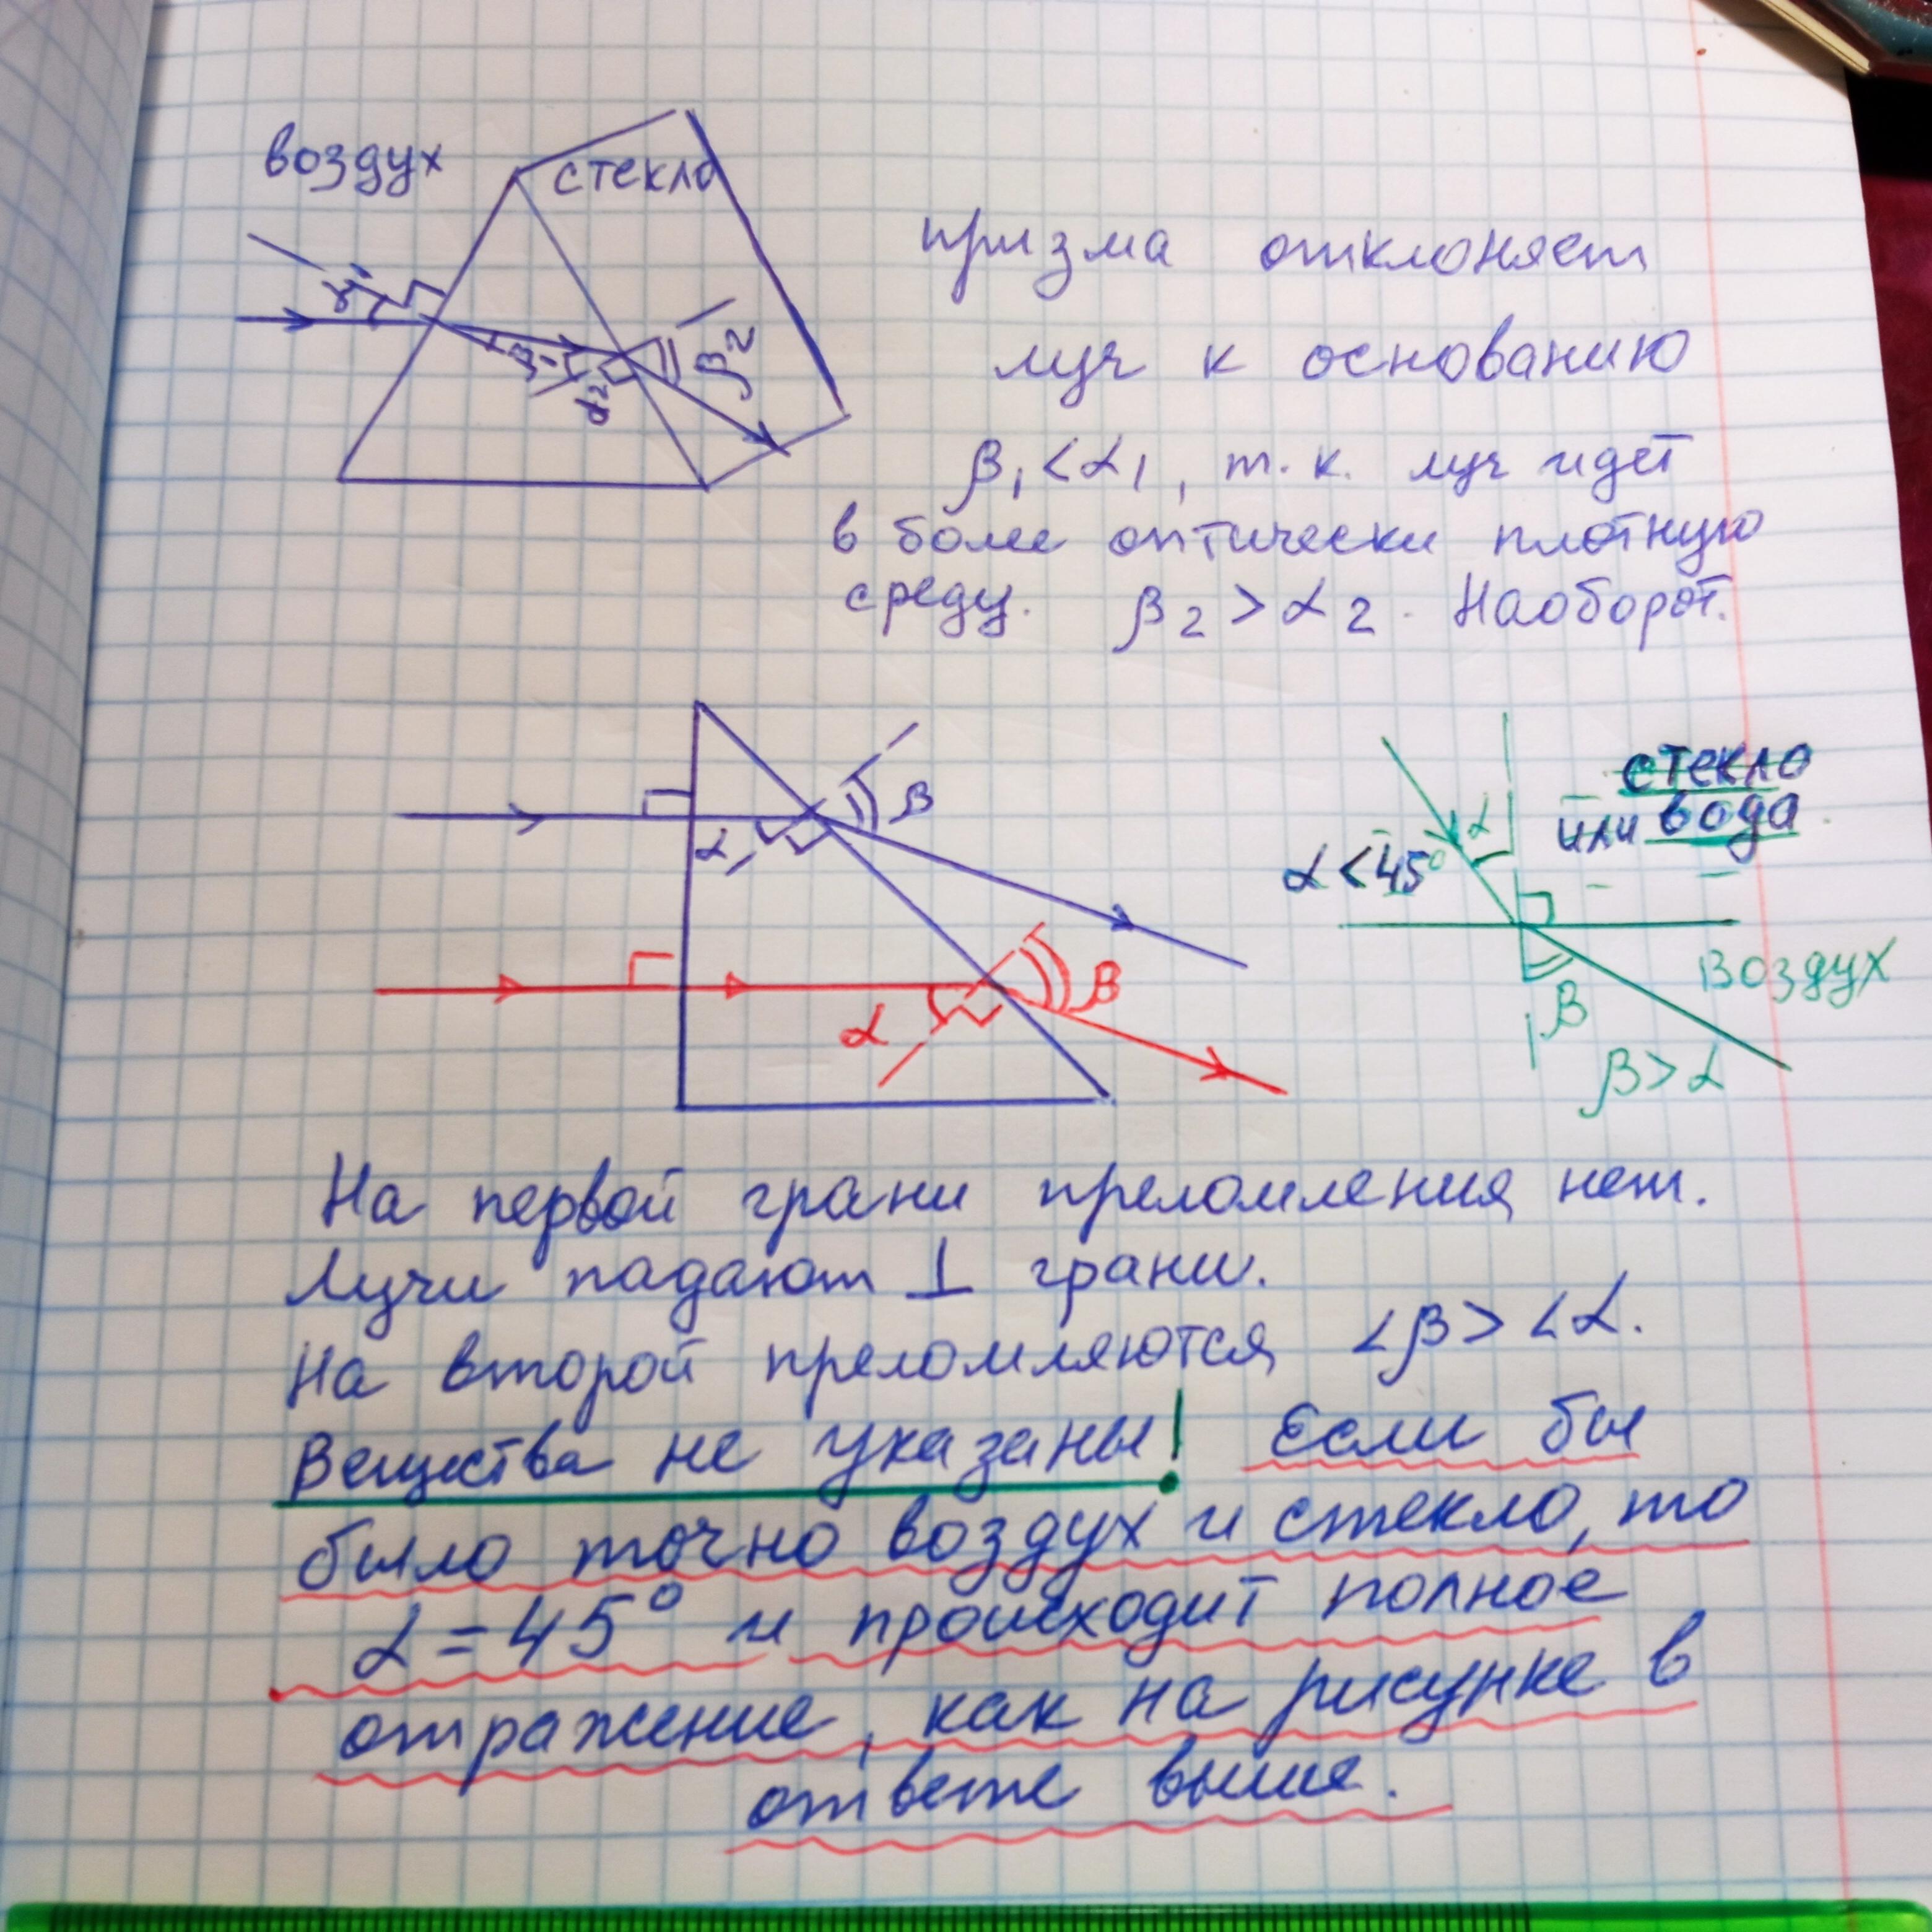 воздух
стекло
α₁
β₁
α₂
β₂
призма отклоняет
луч к основанию
β₁ < α₁, т.к. луч идёт
в более оптически плотную
среду. β₂ > α₂. Наоборот.
α
β
α
β
стекло
или вода
α < 45°
α
воздух
β
β > α
На первой грани преломления нет.
Лучи падают ⊥ грани.
На второй преломляются ∠β > ∠α.
Вещества не указаны! Если бы
было точно воздух и стекло, то
α = 45° и происходит полное
отражение, как на рисунке в
ответе выше.